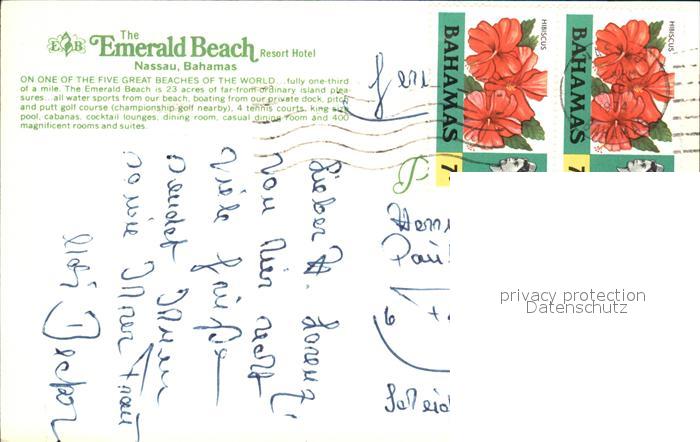 The
Emerald Beach Resort Hotel
E B
Nassau, Bahamas
ON ONE OF THE FIVE GREAT BEACHES OF THE WORLD...fully one-third
of a mile. The Emerald Beach is 23 acres of far-from-ordinary island plea-
sures...all water sports from our beach, boating from our private dock, pitch
and putt golf course (championship golf nearby), 4 tennis courts, king size
pool, cabanas, cocktail lounges, dining room, casual dining room and 400
magnificent rooms and suites.
HIBISCUS
BAHAMAS
HIBISCUS
BAHAMAS
Lieber H. Lorenz!
Von hier recht
viele Grüße
sendet Ihnen
sowie Ihrer Frau
Ihr
Herrn
Paul
privacy protection
Datenschutz